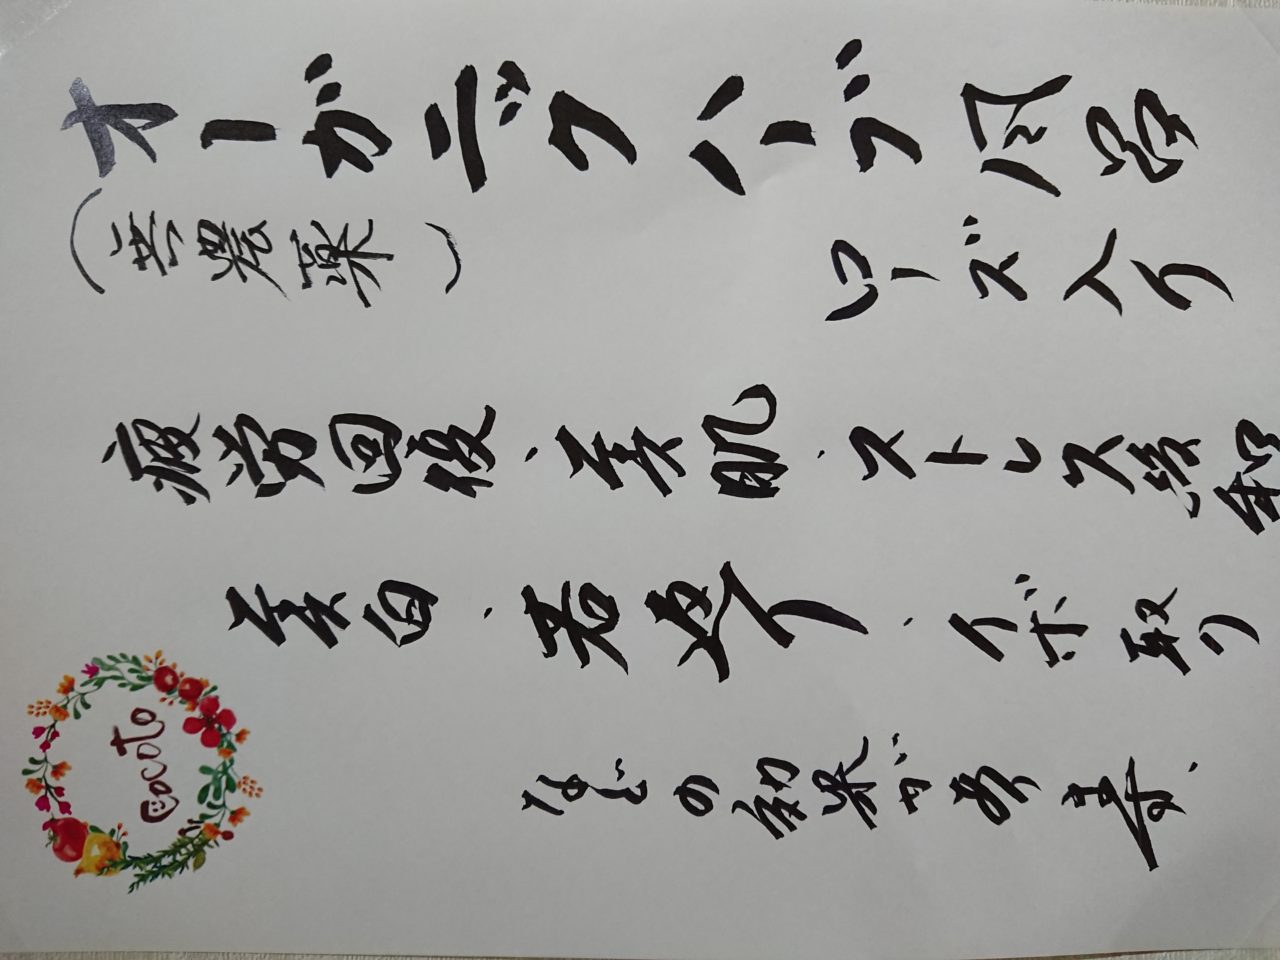 オーガニックハーブ風呂
(無農薬)
ローズ入り
疲労回復、美肌、ストレス緩和
美白、若返り、イボ取り
などの効果があります、
Cocoto